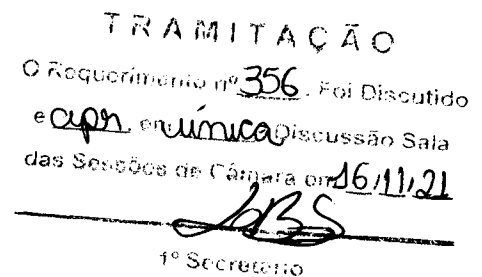 TRAMITAÇÃO
O Requerimento nº 356. Foi Discutido
e apr. em única Discussão Sala
das Sessões de Câmara em 16/11/21
1º Secretário